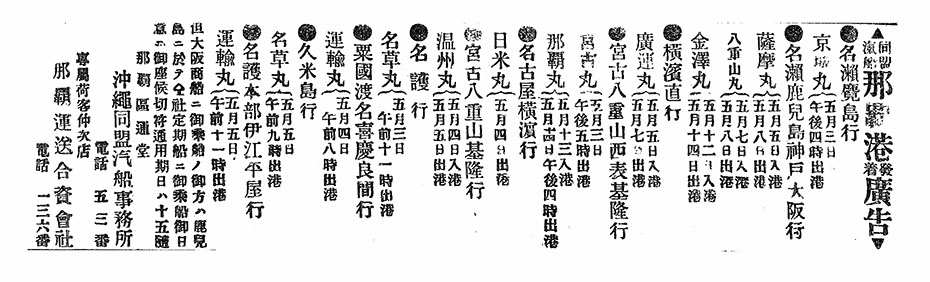 ▲同盟汽船那覇港發着廣告▼
●名瀨鹿島行
京城丸 五月三日午後四時出港
●名瀨鹿兒島神戸大阪行
薩摩丸 五月五日入港 五月八日出港
八重山丸 五月七日入港 五月八日出港
金澤丸 五月十二日入港 五月十四日出港
●橫濱直行
廣運丸 五月五日入港 五月七日出港
●宮古八重山西表基隆行
宮古丸 五月三日午後五時出港
那覇丸 五月十三入港 五月十四日午後四時出港
●名古屋橫濵行
日米丸 五月四日入港 五月九日出港
●宮古八重山基隆行
溫州丸 五月四日入港 五月五日出港
●名護行
名草丸 五月三日午前十一時出港
●粟國渡名喜慶良間行
運輸丸 五月四日午前八時出港
●久米島行
名草丸 五月五日午前九時出港
●名護本部伊江平屋行
運輸丸 五月五日午前十一時出港
但大阪商船ニ御乘船ノ御方ハ鹿兒
島ニ於テ仝社定期船ニ御乘船御日
意ニ御座候切符通用期日ハ十五日
那覇區通堂
沖繩同盟汽船事務所
電話 五三番
專屬荷客仲次店
那覇運送合資會社
電話 一三六番